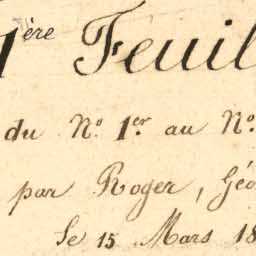 1ère Feuil
du No. 1er. au No.
par Roger, Géo
Le 15 Mars 18